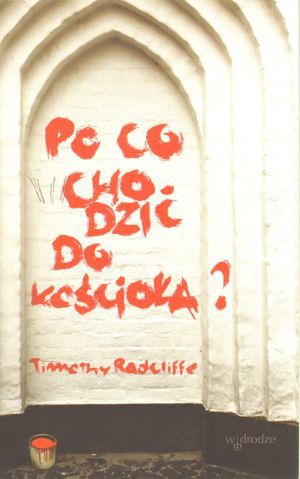 PO CO
CHO-
DZIĆ
DO
KOŚCIOŁA?
Timothy Radcliffe
w drodze